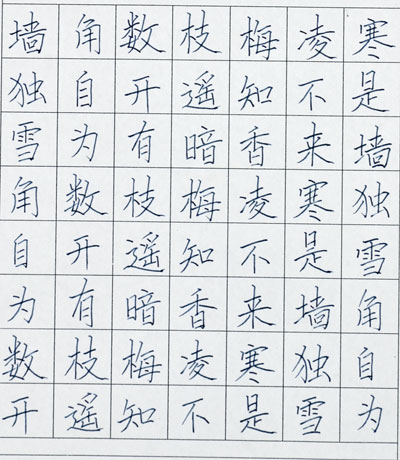 墙角数枝梅凌寒
独自开遥知不是
雪为有暗香来墙
角数枝梅凌寒独
自开遥知不是雪
为有暗香来墙角
数枝梅凌寒独自
开遥知不是雪为